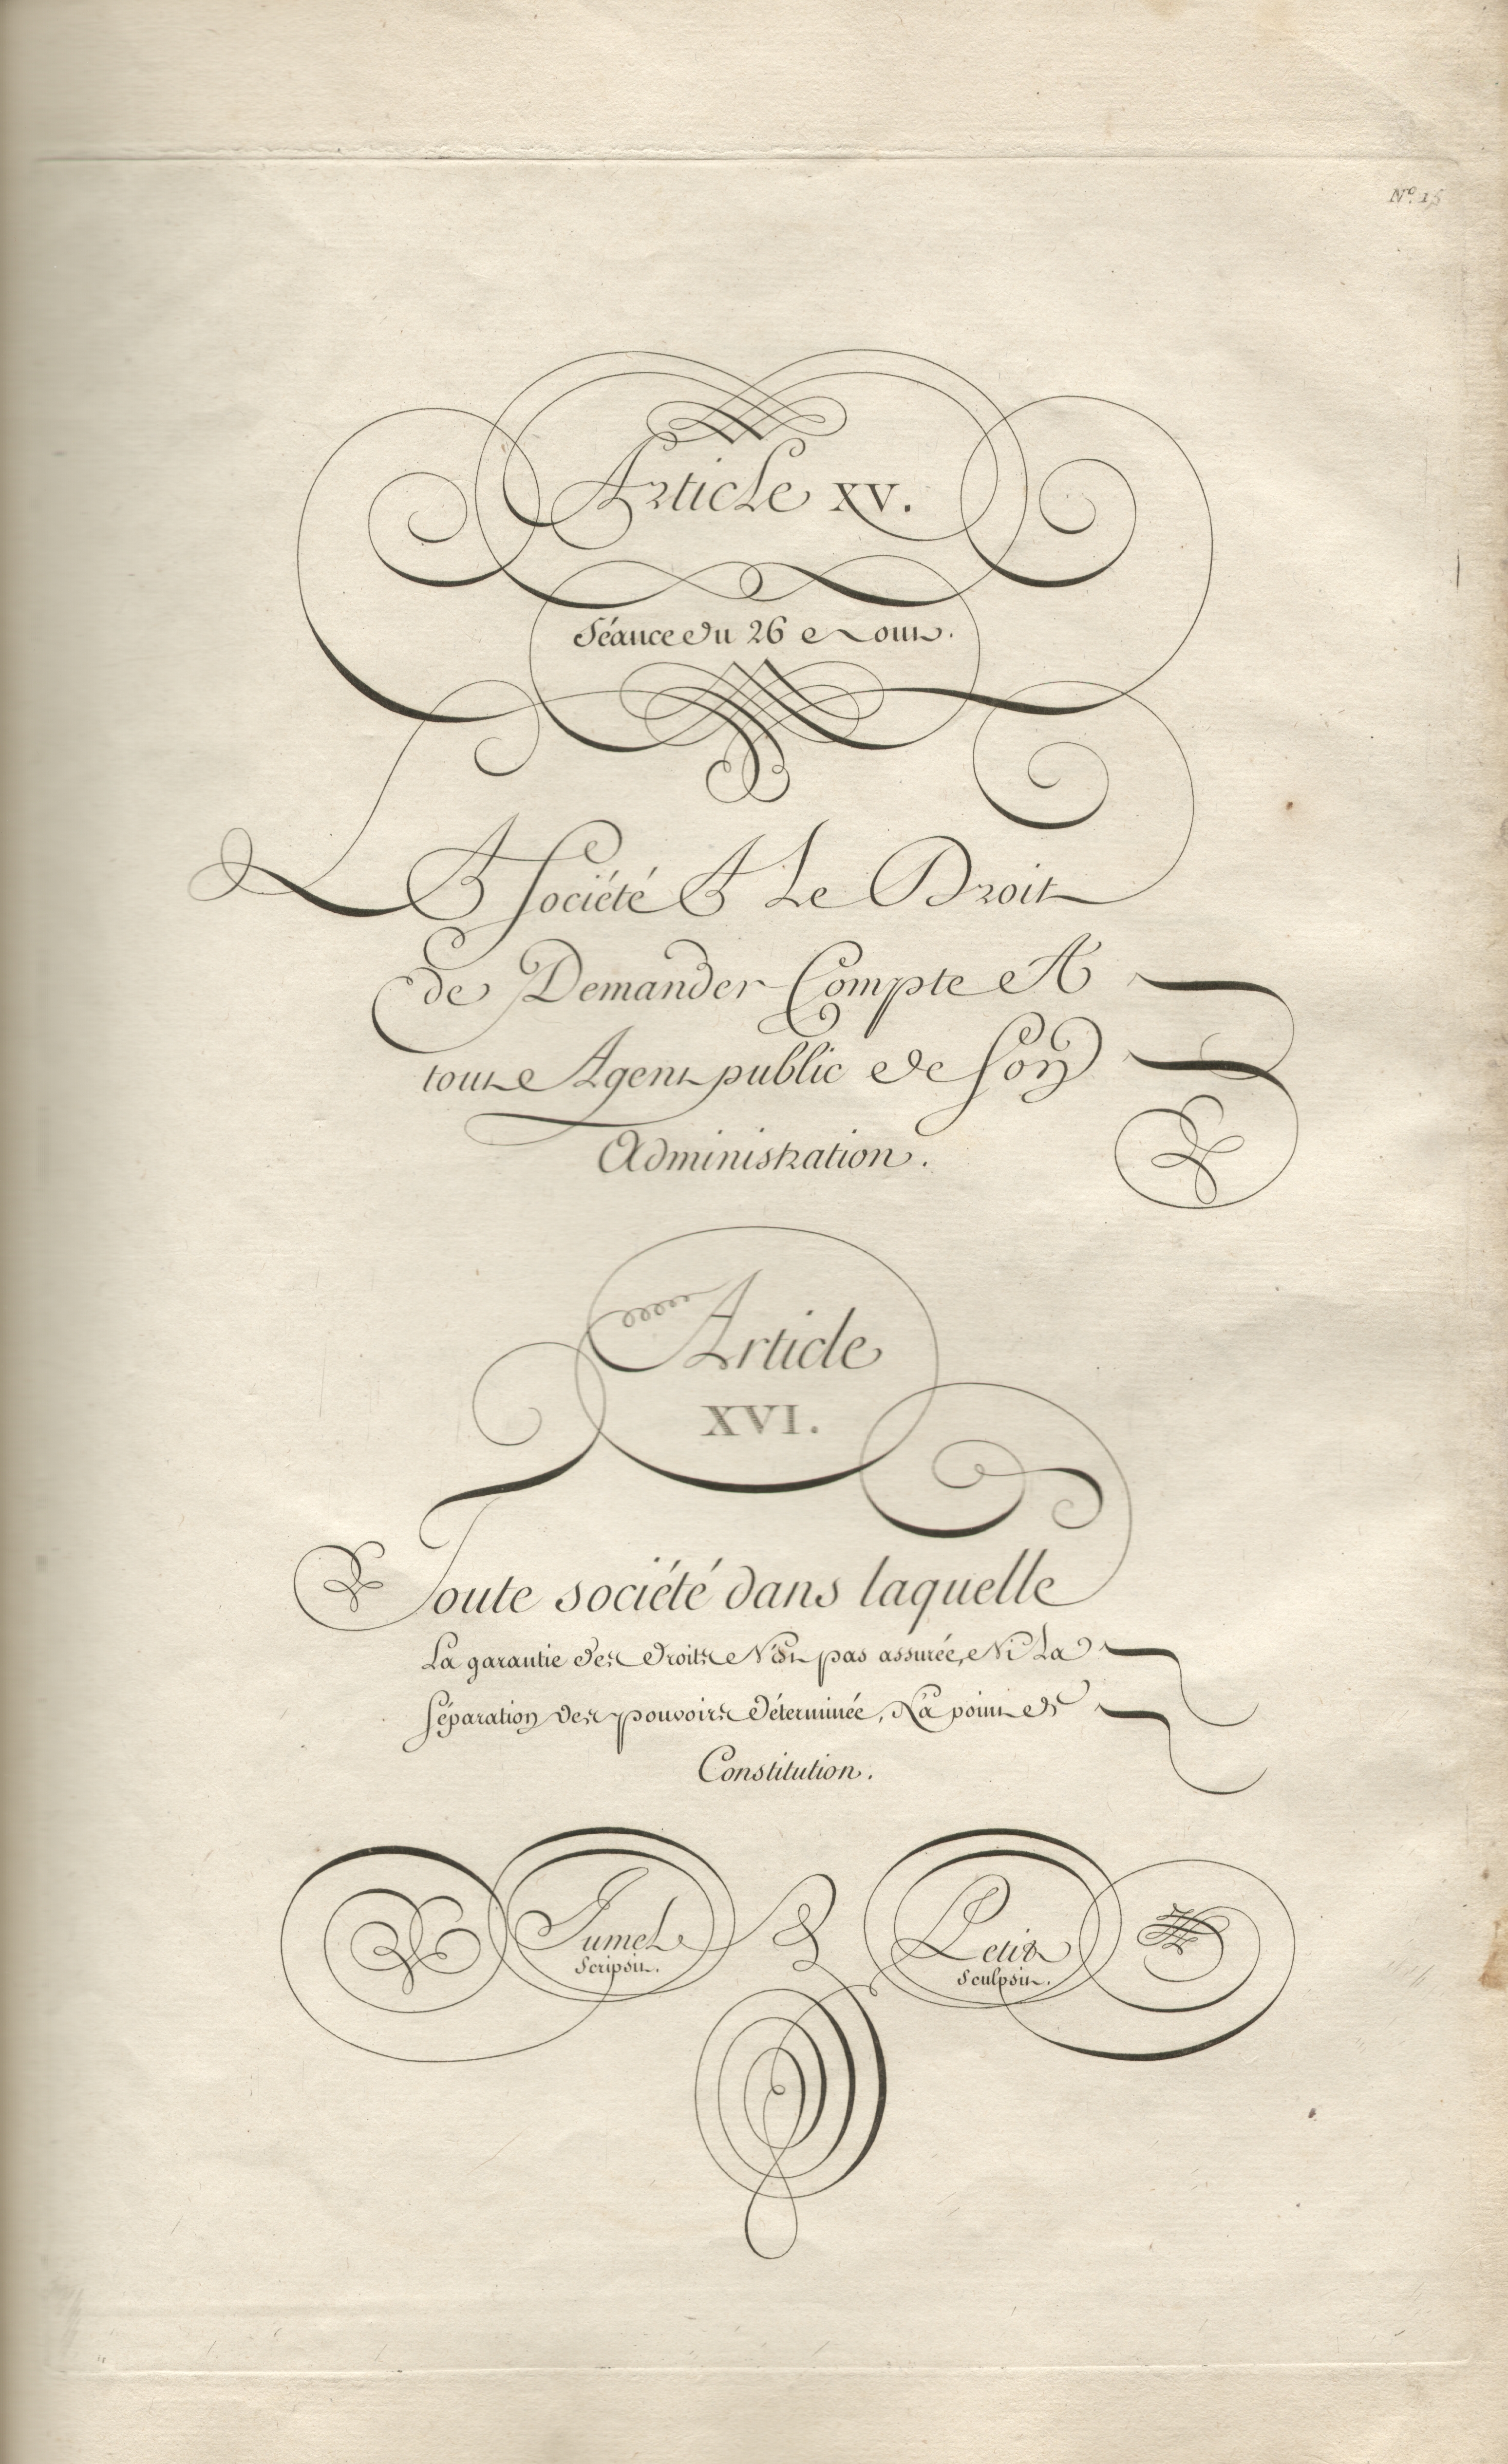 N.º 15
Article XV.
Séance du 26 Aout.
LA Société A Le Droit
de Demander Compte A
tout Agent public de Son
Administration.
Article
XVI.
Toute société dans laquelle
La garantie des droits N'est pas assurée, Ni La
Séparation des pouvoirs déterminée, N'a point de
Constitution.
Jumel
Scripsit.
Petit
Sculpsit.